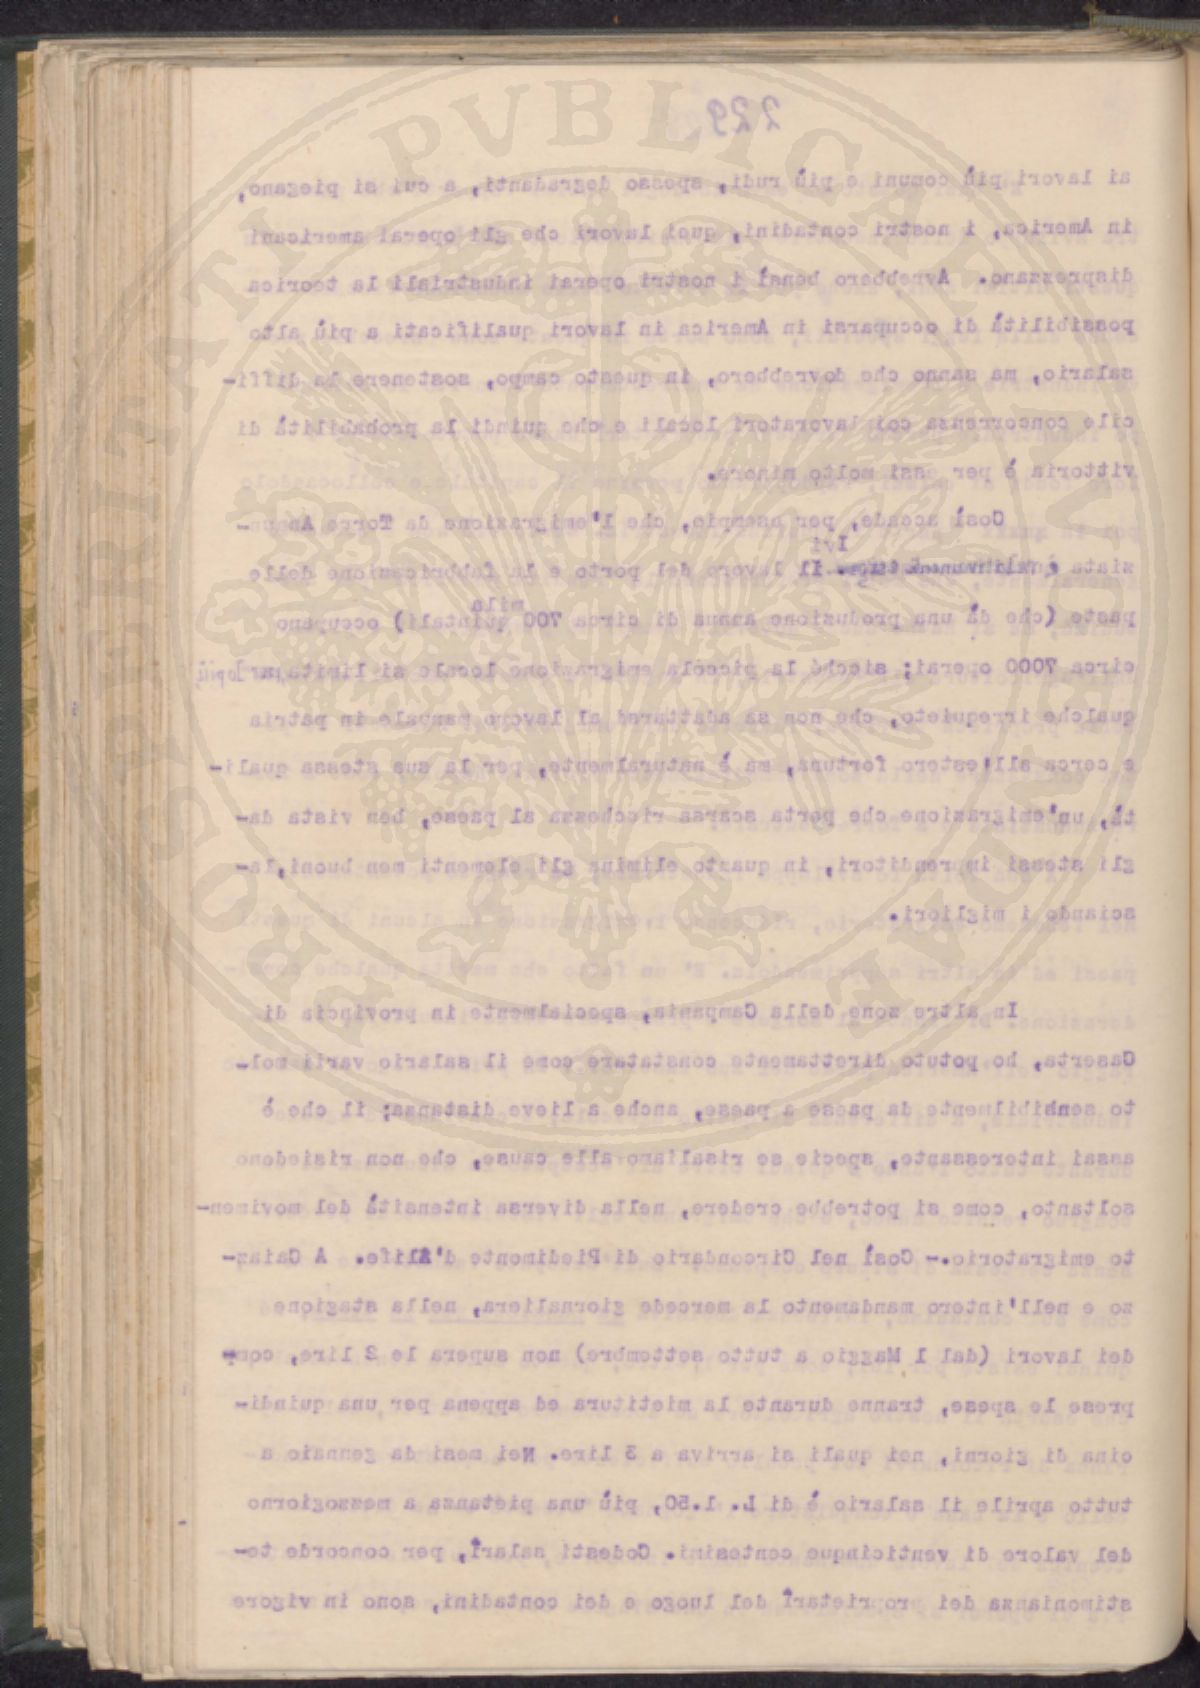 229
ai lavori più comuni e più rudi, spesso degradanti, a cui si piegano,
in America, i nostri contadini, quei lavori che gli operai americani
disprezzano. Avrebbero bensì i nostri operai industriali la teorica
possibilità di occuparsi in America in lavori qualificati a più alto
salario, ma sanno che dovrebbero, in questo campo, sostenere la diffi-
cile concorrenza coi lavoratori locali e che quindi la probabilità di
vittoria è per essi molto minore.
Così accade, per esempio, che l'emigrazione da Torre Annun-
Ivi
ziata è il lavoro del porto e la fabbricazione delle
mila
paste (che dà una produzione annua di circa 700 quintali) occupano
circa 7000 operai; sicché la piccola emigrazione locale si limita
qualche irrequieto, che non sa adattarsi al lavoro manuale in patria
e cerca all'estero fortuna, ma è naturalmente, per la sua stessa quali-
tà, un'emigrazione che porta scarsa ricchezza al paese, ben vista da-
gli stessi imprenditori, in quanto elimina gli elementi men buoni, la-
sciando i migliori.
In altre zone della Campania, specialmente in provincia di
Caserta, ho potuto direttamente constatare come il salario varii mol-
to sensibilmente da paese a paese, anche a lieve distanza; il che è
assai interessante, specie se risaliamo alle cause, che non risiedono
soltanto, come si potrebbe credere, nella diversa intensità del movimen-
to emigratorio.- Così nel Circondario di Piedimonte d'Alife. A Caiaz-
zo e nell'intero mandamento la mercede giornaliera, nella stagione
dei lavori (dal 1 Maggio a tutto settembre) non supera le 2 lire, com-
prese le spese, tranne durante la mietitura ed appena per una quindi-
cina di giorni, nei quali si arriva a 3 lire. Nei mesi da gennaio a
tutto aprile il salario è di L. 1.50, più una pietanza a mezzogiorno
del valore di venticinque centesimi. Codesti salarî, per concorde te-
stimonianza dei proprietarî del luogo e dei contadini, sono in vigore
PVBLICAE VTILITATI
PROSPERITATI